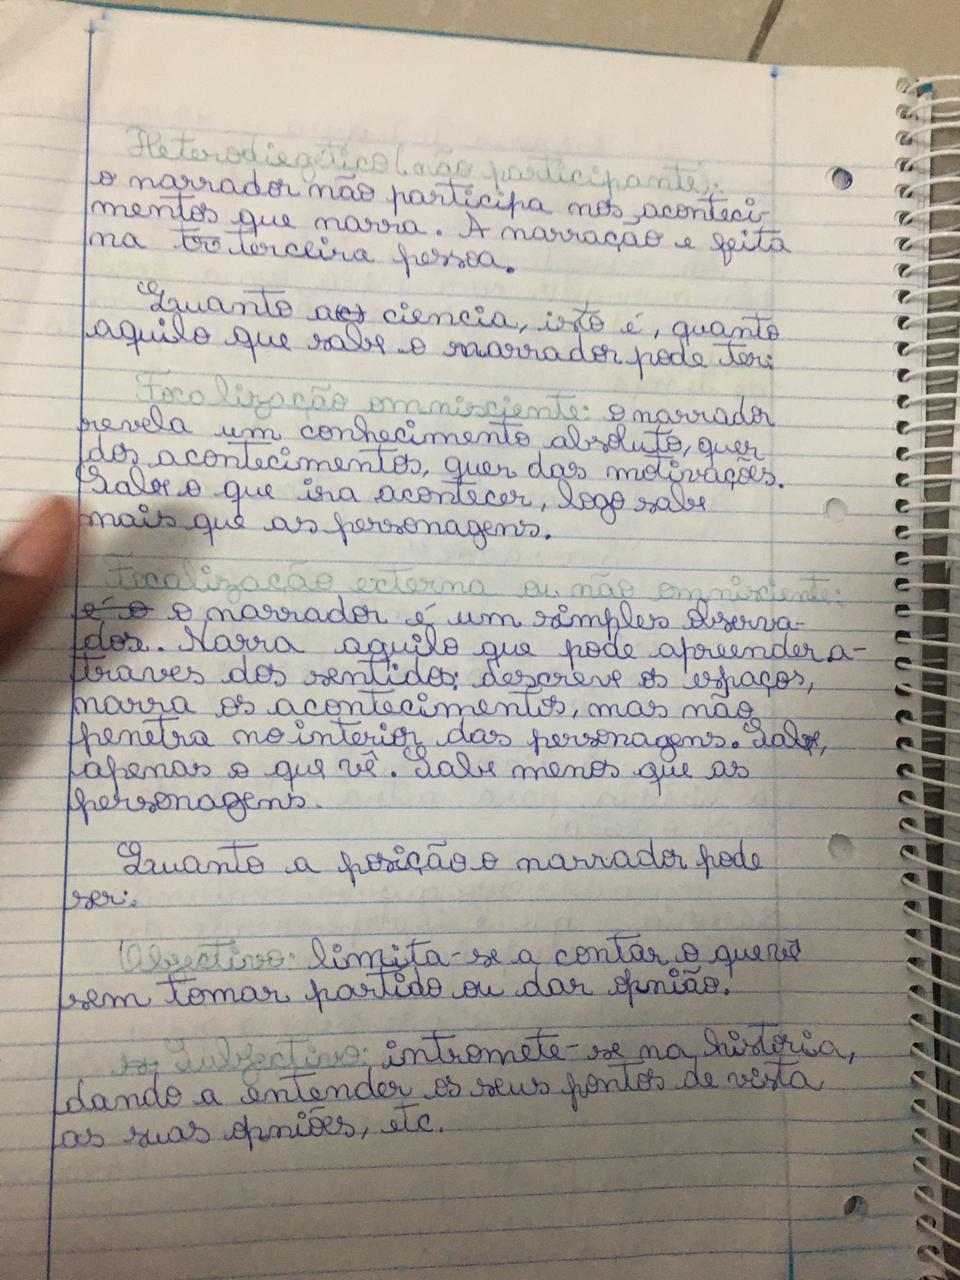 Heterodiegético (não participante):
o narrador não participa nos aconteci-
mentos que narra. A narração e feita
na tr terceira pessoa.
Quanto a ciencia, isto é, quanto
aquilo que sabe o narrador pode ter:
Focalização omnisciente: o narrador
revela um conhecimento absoluto, quer
dos acontecimentos, quer das motivações.
Sabe o que ira acontecer, logo sabe
mais que as personagens.
Focalização externa ou não omnisciente:
é o o narrador é um simples observa-
dor. Narra aquilo que pode apreender a-
traves dos sentidos: descreve os espaços,
narra os acontecimentos, mas não
penetra no interior das personagens. Sabe,
apenas o que vê. Sabe menos que as
personagens.
Quanto a posição o narrador pode
ser:
Objectivo: limita-se a contar o que vê
sem tomar partido ou dar opnião.
Subjectivo: intromete-se na história,
dando a entender os seus pontos de vista
as suas opniões, etc.